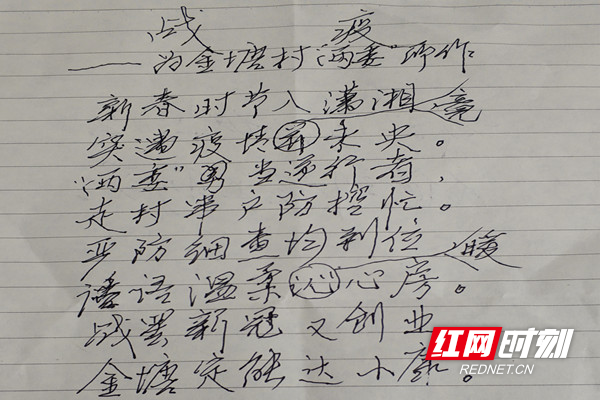 战 疫
——为金塘村“两委”而作
新春时节入潇湘 竟
突遇疫情未央。
“两委”勇当逆行者，
走村串户防控忙。
严防细查均到位 暖
话语温柔心房。
战罢新冠又创业
金塘定能达小康。
红网时刻
REDNET.CN